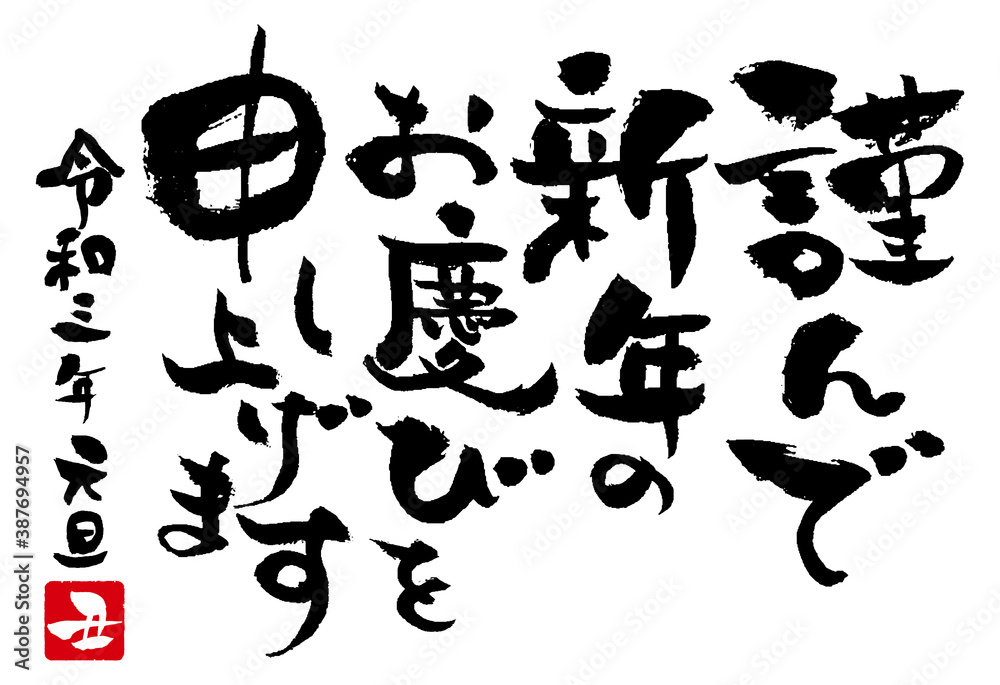 謹んで
新年の
お慶びを
申し上げます
令和三年 元旦
丑
Adobe Stock | #387694957